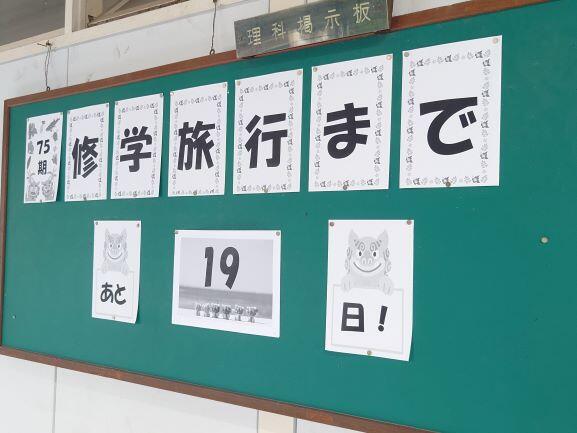 理科掲示板
75期 修学旅行まで
あと 19 日!